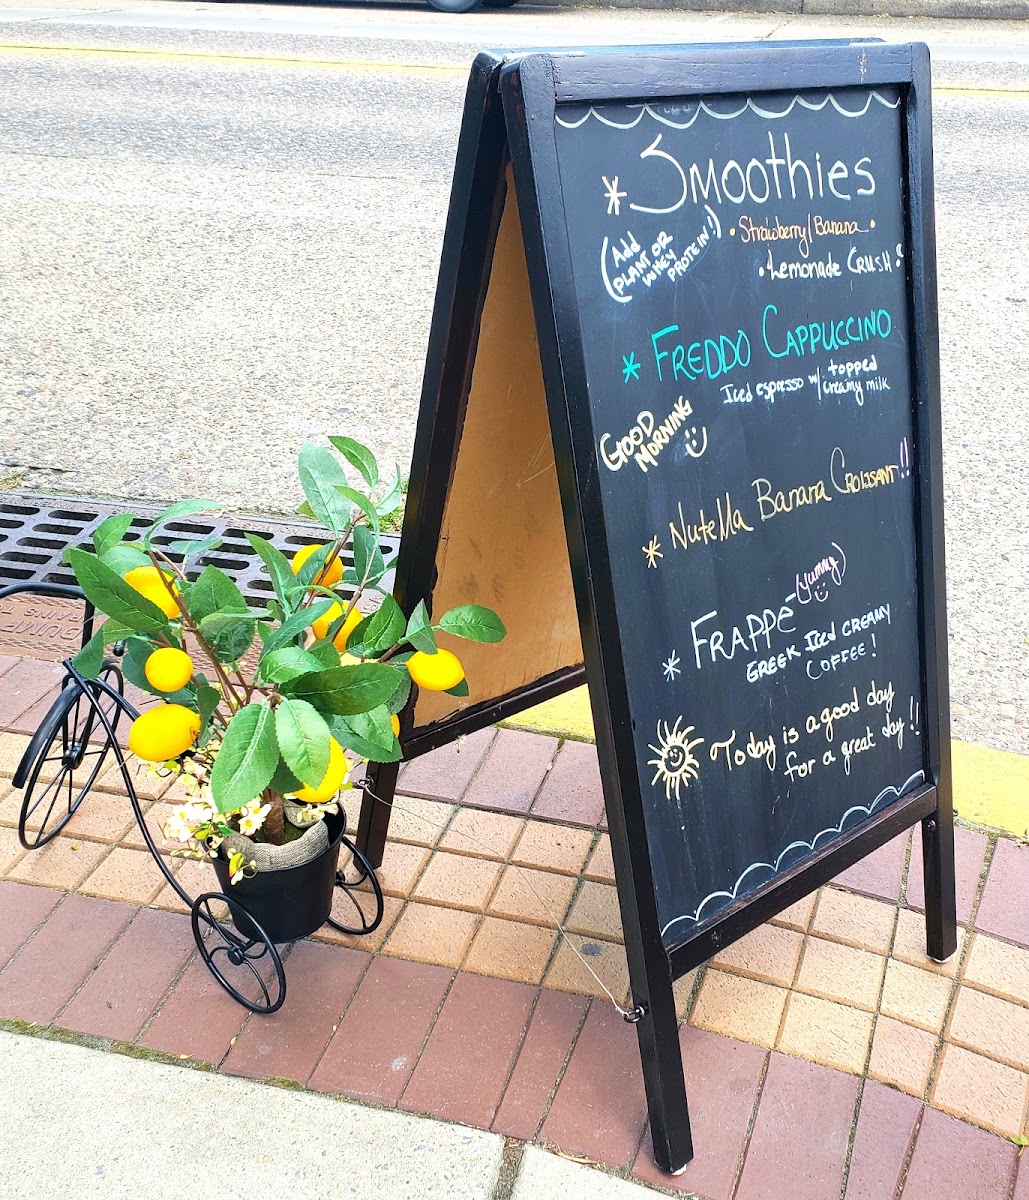 * Smoothies
(Add
PLANT OR
WHEY
PROTEIN!)
• Strawberry/Banana •
• Lemonade CRUSH!
* FREDDO CAPPUCCINO
Iced espresso w/ topped
creamy milk
GOOD
MORNING
* Nutella Banana CROISSANT!!
(yummy)
* FRAPPÉ
GREEK Iced CREAMY
COFFEE!
Today is a good day
for a great day!!
DUMP